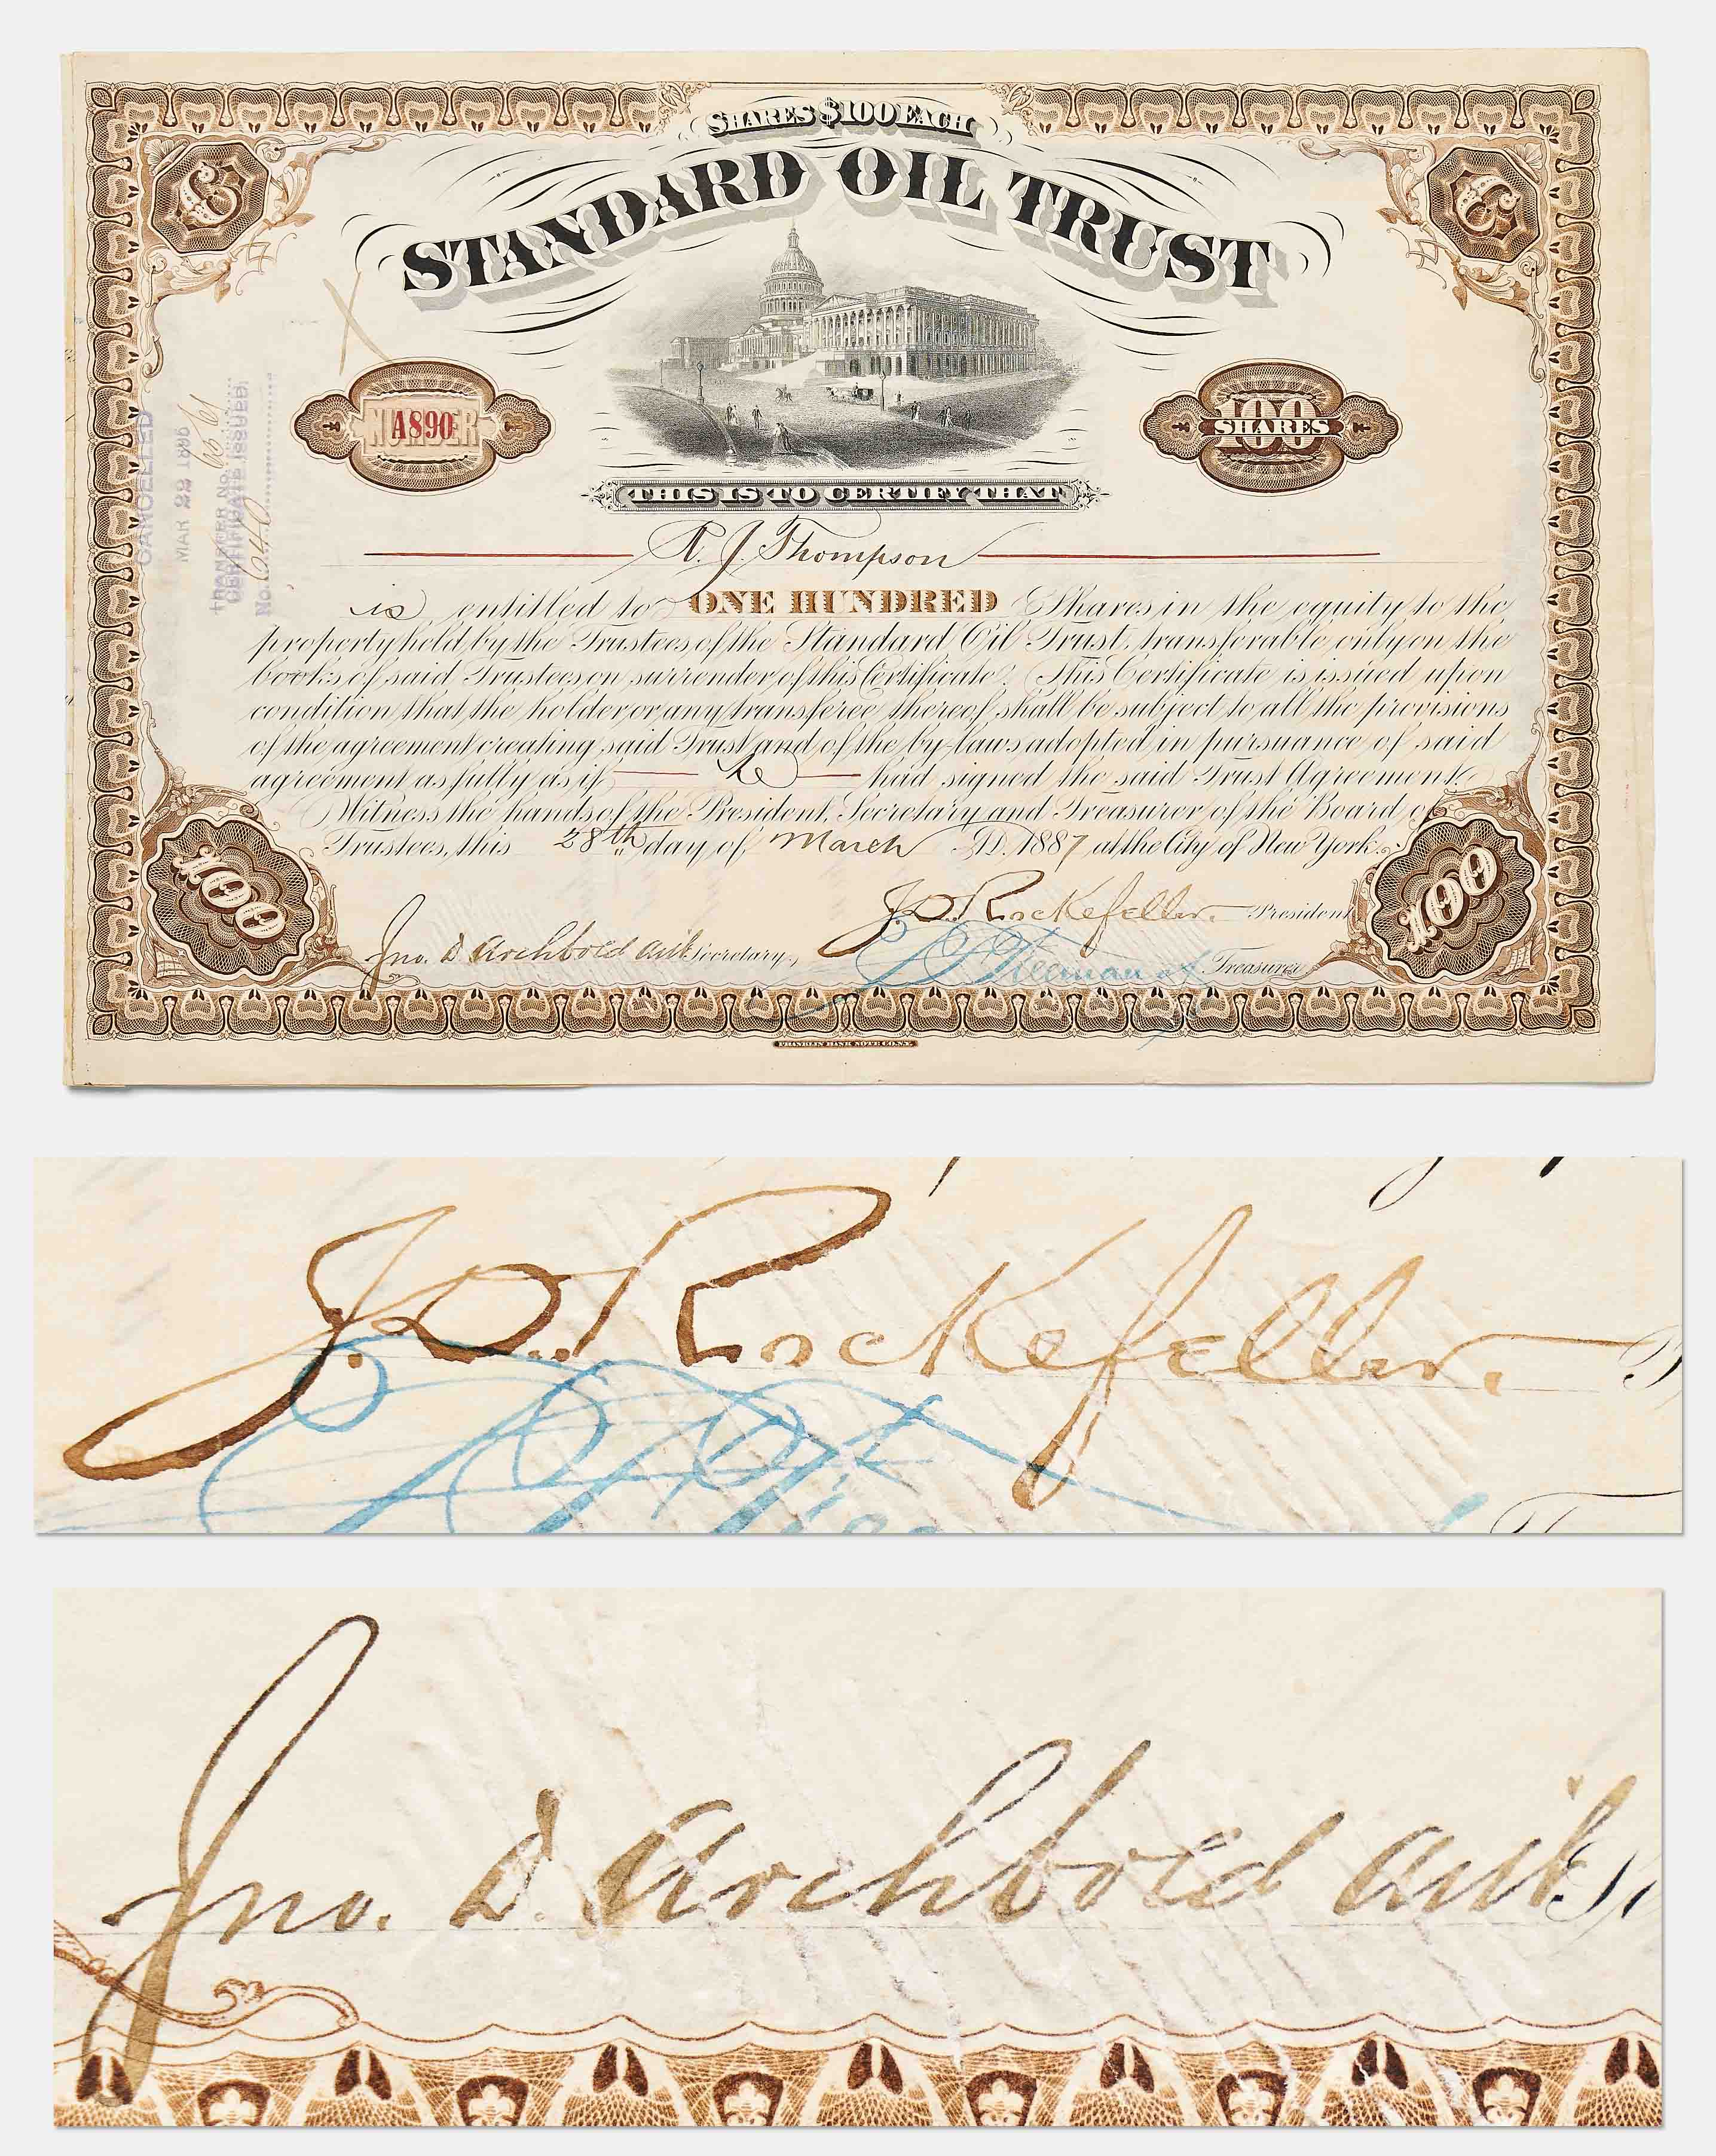 SHARES $100 EACH
STANDARD OIL TRUST
C
C
NUMBER
A890
100
SHARES
CANCELLED
MAR 22 189
TRANSFER No.
CERTIFICATE ISSUED,
No. 640
THIS IS TO CERTIFY THAT
A. J. Thompson
is entitled to ONE HUNDRED Shares in the equity to the
property held by the Trustees of the Standard Oil Trust, transferable only on the
books of said Trustees on surrender of this Certificate. This Certificate is issued upon
condition that the holder or any transferee thereof shall be subject to all the provisions
of the agreement creating said Trust and of the by-laws adopted in pursuance of said
agreement as fully as if he had signed the said Trust Agreement.
Witness the hands of the President, Secretary and Treasurer of the Board of
Trustees, this 28th day of March A.D. 1887 at the City of New York.
100
100
J.D. Rockefeller. President
Jno. D Archbold Secretary,
Treasurer
FRANKLIN BANK NOTE CO. N.Y.
J.D. Rockefeller.
Jno. D. Archbold